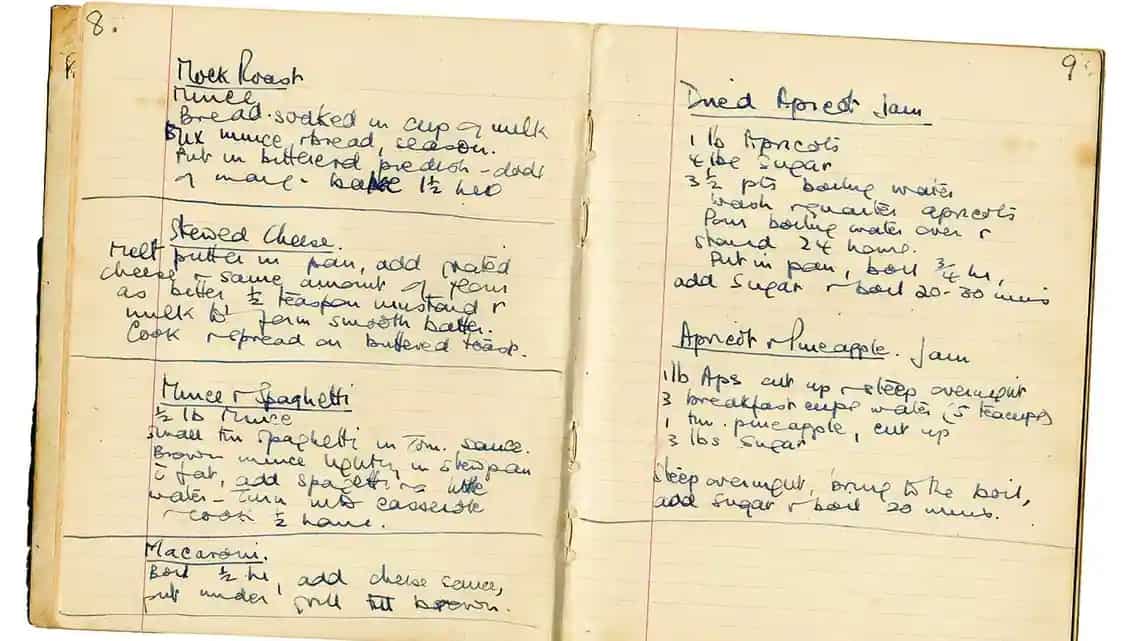 8.
Mock Roast
Mince,
Bread soaked in cup of milk
Mix mince & bread, season.
Put in buttered piedish - dods
of marg - bake 1½ hrs
Stewed Cheese.
Melt butter in pan, add grated
cheese & same amount of flour
as butter ½ teaspoon mustard &
milk to form smooth batter.
Cook & spread on buttered toast.
Mince & Spaghetti
½ lb Mince
Small tin spaghetti in Tom. sauce.
Brown mince lightly in stewpan
c̄ fat, add spaghetti & little
water - Turn into casserole
& cook ½ hour.
Macaroni.
Boil ½ hr, add cheese sauce,
put under grill till brown.
9.
Dried Apricot Jam
1 lb Apricots
4 lbs Sugar
3½ pts boiling water
Wash & quarter apricots
Pour boiling water over &
stand 24 hours.
Put in pan, boil ¾ hr,
add sugar & boil 20-30 mins
Apricot & Pineapple. Jam
1 lb Aps cut up & steep overnight
3 breakfast cups water (5 teacups)
1 tin pineapple, cut up
3 lbs Sugar
Steep overnight, bring to the boil,
add sugar & boil 20 mins.